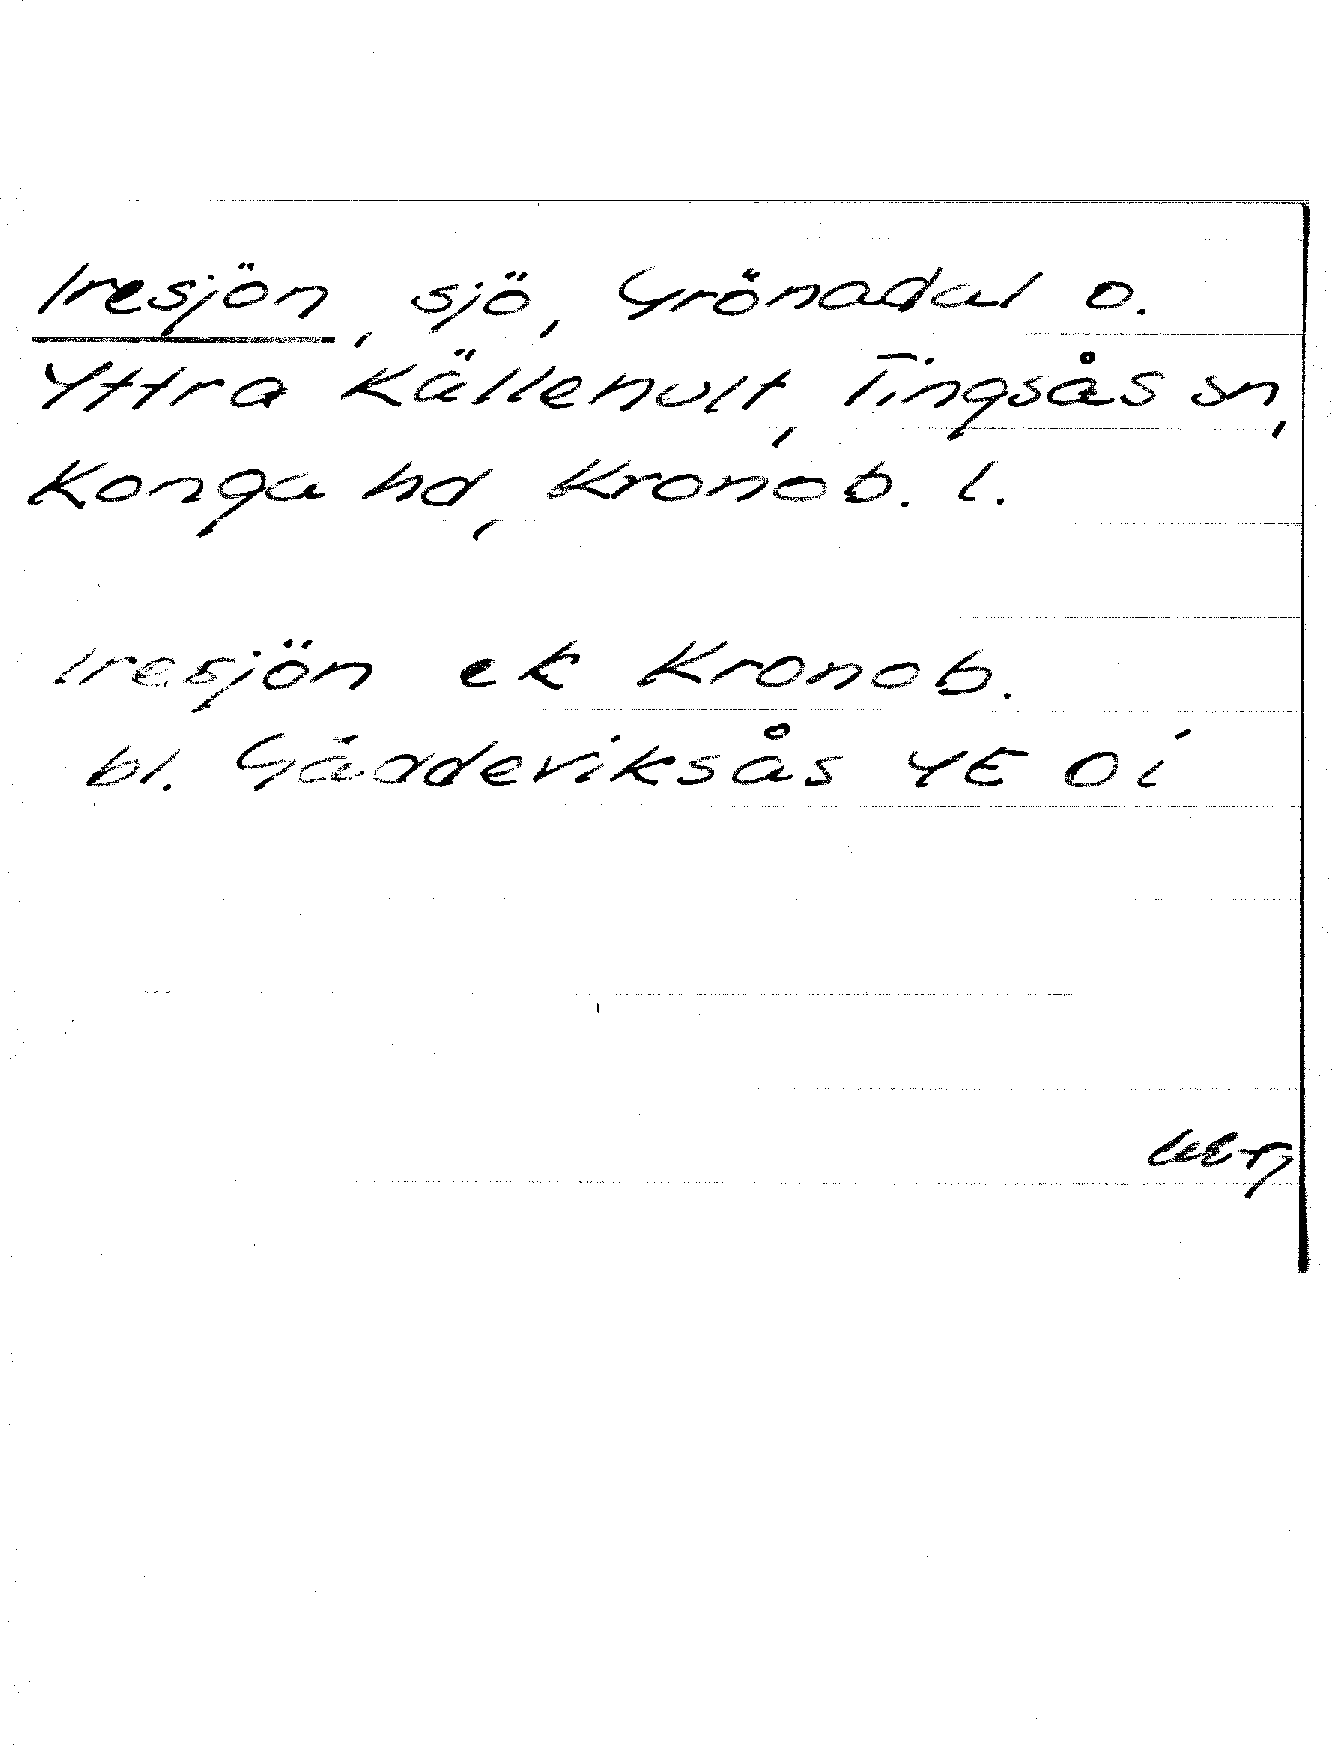 Iresjön, sjö, Grönadal o.
Yttra Källehult, Tingsås sn,
Konga hd, Kronob. l.
Iresjön ek Kronob.
bl. Gäddeviksås 4E 0i